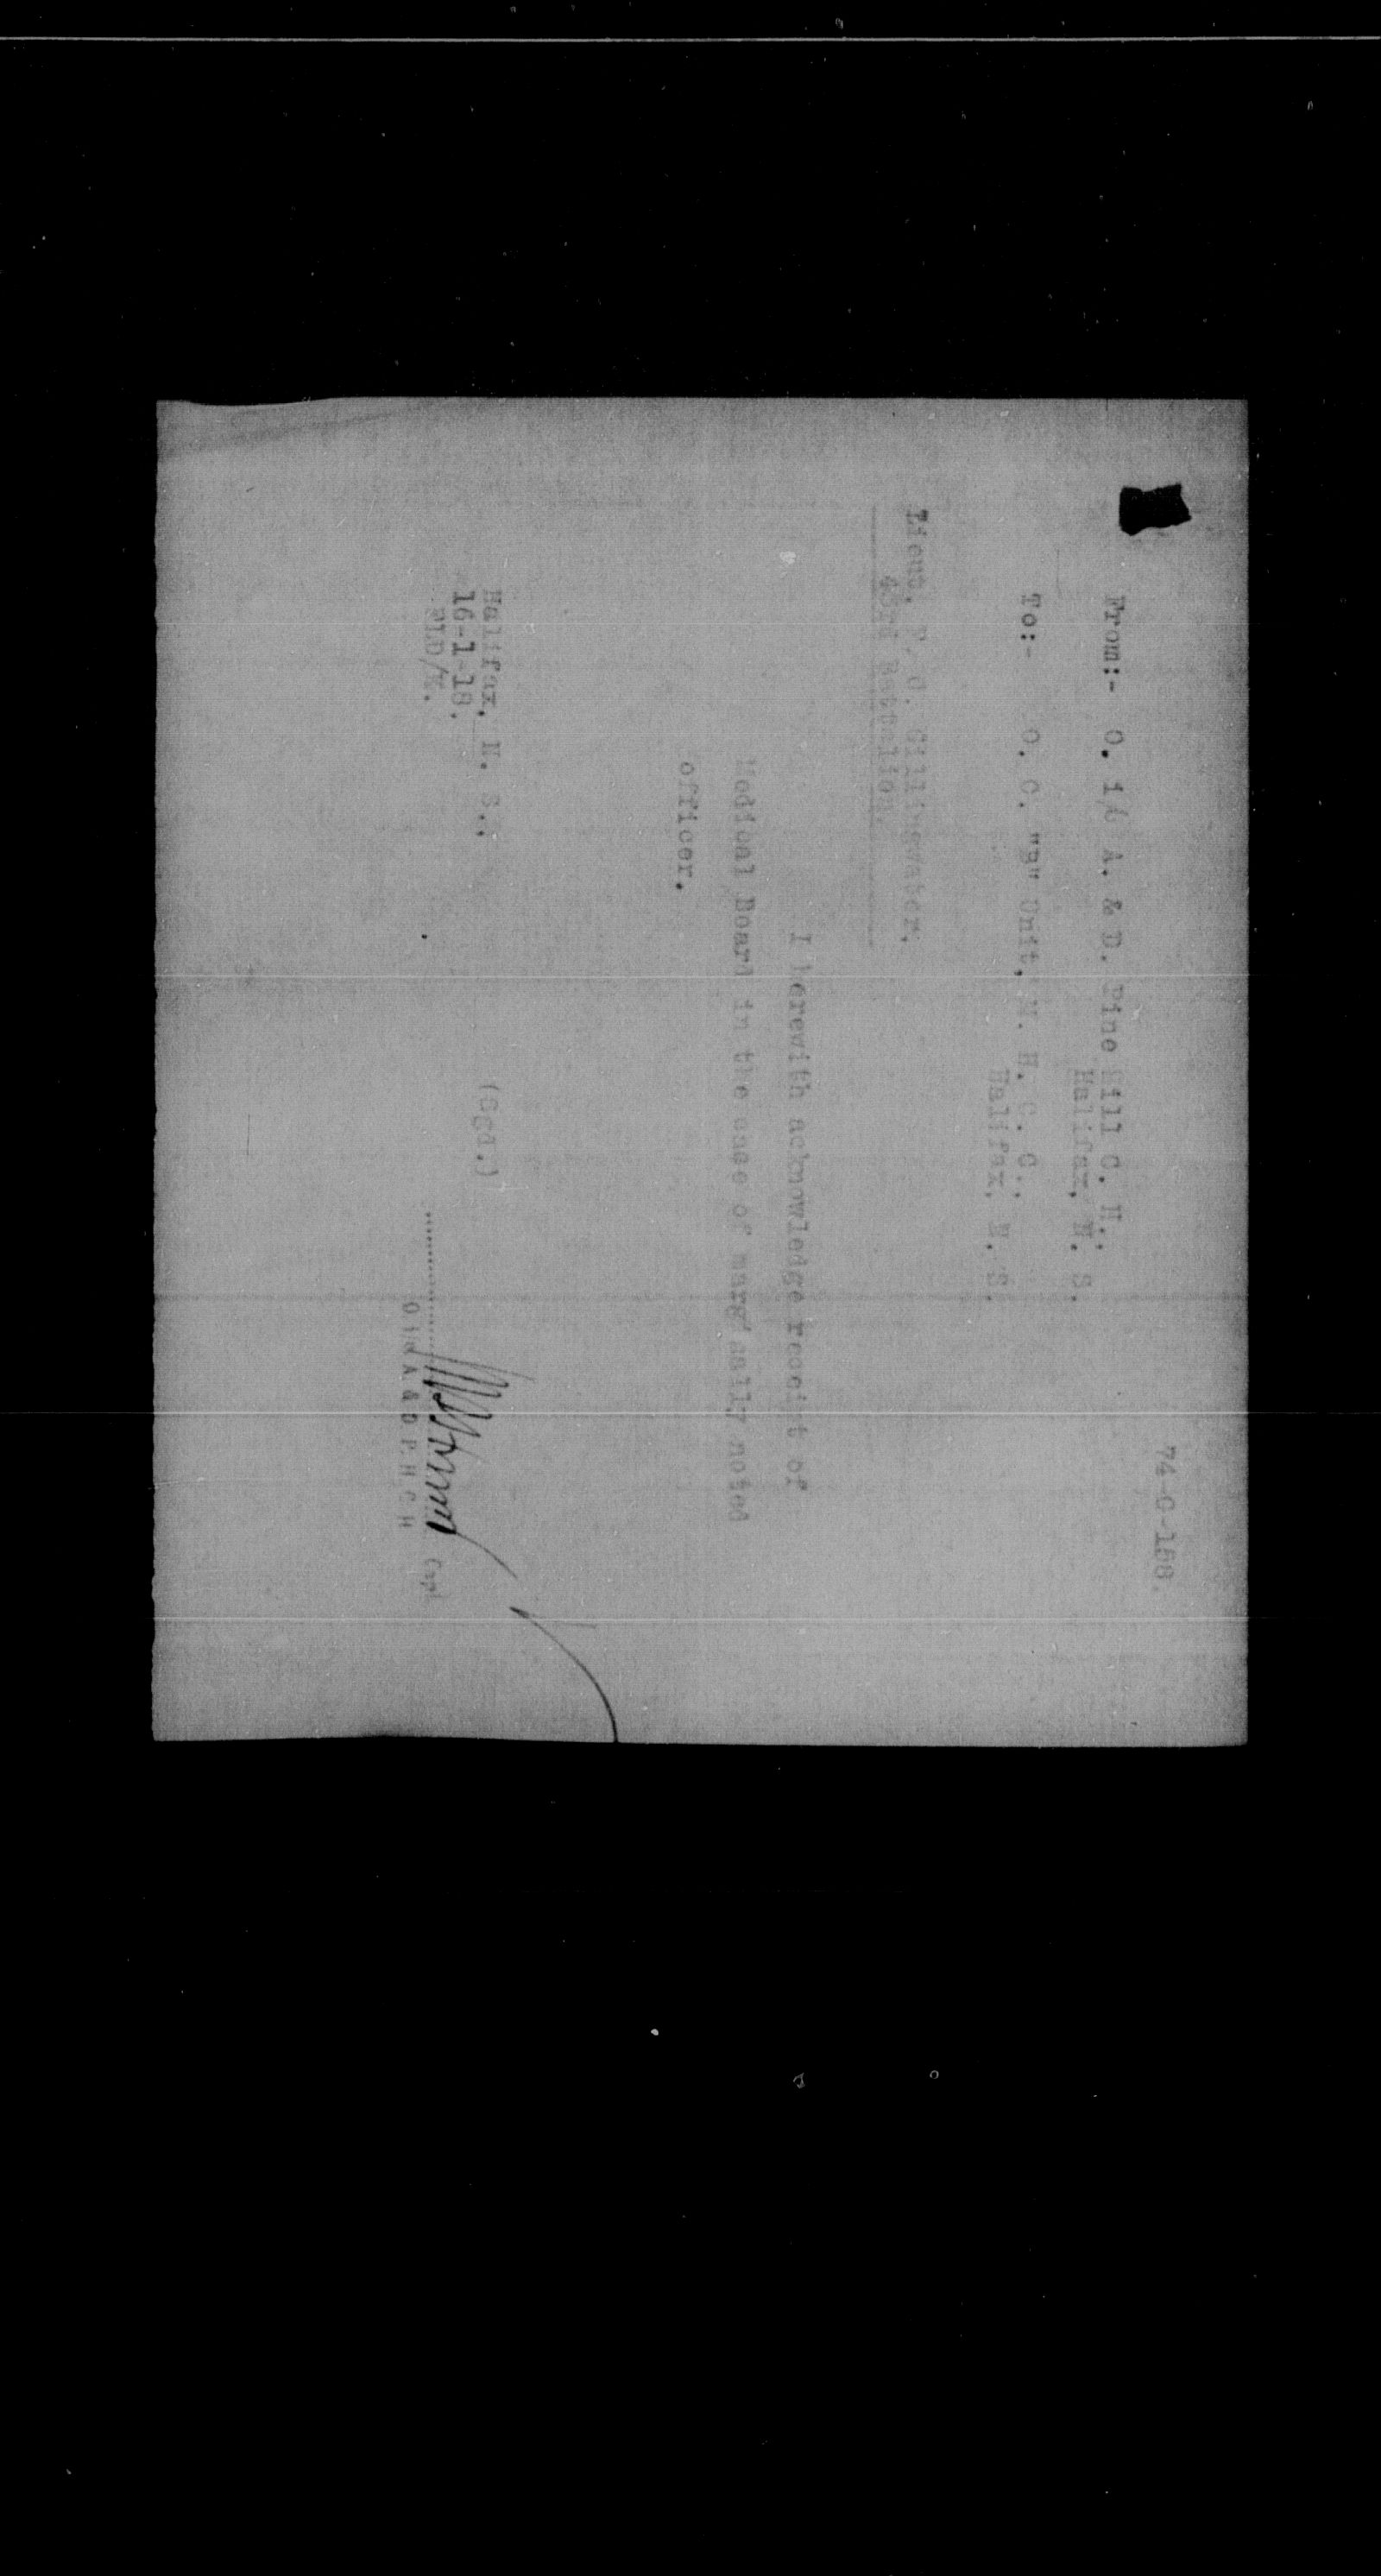 74-G-188.
From:- O. i/c A. & D. Pine Hill C. H.,
Halifax, N. S.
To:- O. C. "B" Unit, M. H. C. C.,
Halifax, N. S.
Lieut. Gillingwater,
Battalion.
I herewith acknowledge receipt of
Medical Board in the case of marginally noted
officer.
Halifax, N. S.,
16-1-18.
(Sgd.)
Capt
O i/c A & D P H C H